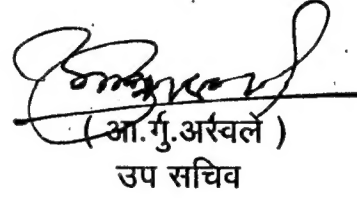 ( आ.गु.अरवले )
उप सचिव